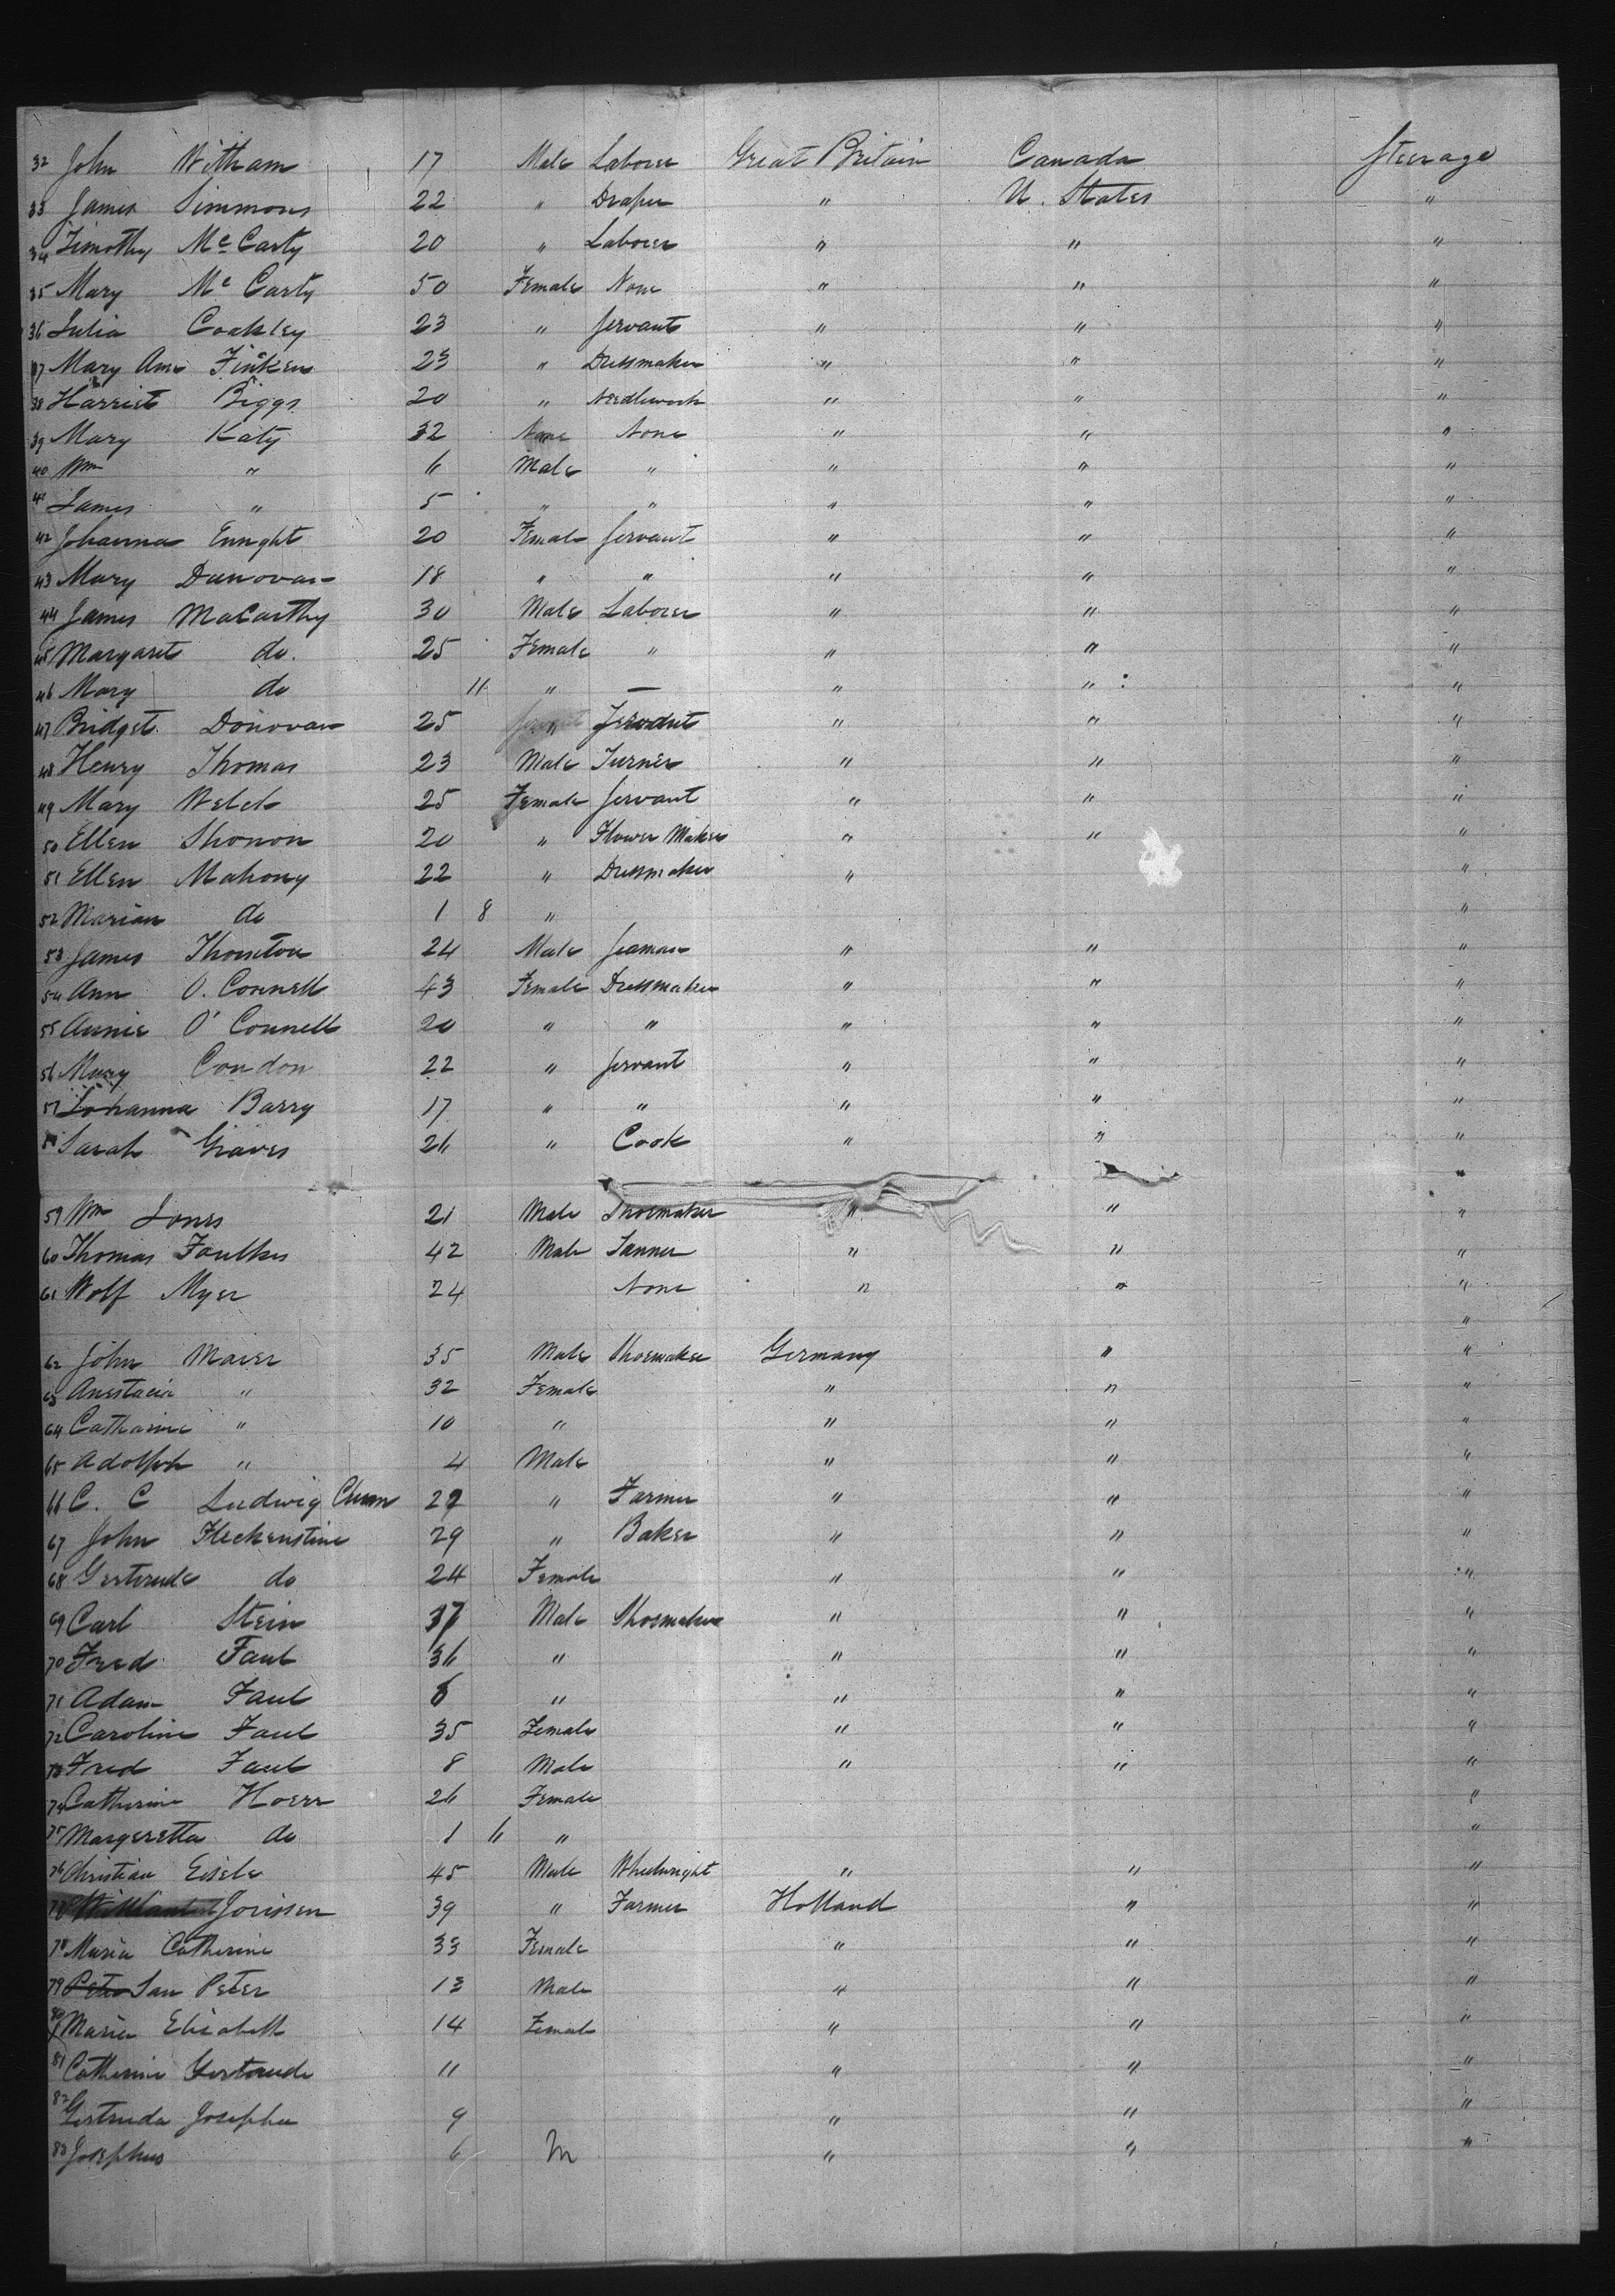 32 John Witham 17 Male Laborer Great Britain Canada Steerage
33 James Simmons 22 " Draper " U. States "
34 Timothy McCarty 20 " Laborer " " "
35 Mary McCarty 50 Female None " " "
36 Julia Coakley 23 " Servant " " "
37 Mary Ann 23 " Dressmaker " " "
38 Harriet Biggs 20 " Needlework " " "
39 Mary Katy 32 None None " " "
40 Wm " 6 Male " " " "
41 James " 5 " " " " "
42 Johanna 20 Female Servant " " "
43 Mary Dunovan 18 " " " " "
44 James MaCarthy 30 Male Laborer " " "
45 Margaret do. 25 Female " " " "
46 Mary do 11 " — " " "
47 Bridget Donovan 25 " Servant " " "
48 Henry Thomas 23 Male Turner " " "
49 Mary Welch 25 Female Servant " " "
50 Ellen Shonon 20 " Flower Maker " " "
51 Ellen Mahony 22 " Dressmaker " "
52 Marian do 1 8 " "
53 James Thornton 24 Male Seaman " " "
54 Ann O. Connell 43 Female Dressmaker " " "
55 Annie O'Connell 20 " " " " "
56 Mary Condon 22 " Servant " " "
57 Johanna Barry 17 " " " " "
58 Sarah Graves 26 " Cook " " "
"
59 Wm Jones 21 Male Shoemaker " " "
60 Thomas Faulkes 42 Male Tanner " " "
61 Wolf Myer 24 None " " "
"
62 John Maier 35 Male Shoemaker Germany " "
63 Anestacia " 32 Female " " "
64 Catharine " 10 " " " "
65 Adolph " 4 Male " " "
66 C. C Ludwig 27 " Farmer " " "
67 John Fleckenstine 29 " Baker " " "
68 Gertrude do 24 Female " " "
69 Carl Stein 37 Male Shoemaker " " "
70 Fred Faul 36 " " " "
71 Adam Faul 6 " " " "
72 Caroline Faul 35 Female " " "
73 Fred Faul 8 Male " " "
74 Catherine Hoerr 26 Female "
75 Margeretta do 1 6 " "
76 Christian Eisele 45 Male Wheelwright " " "
77 Jorissen 39 " Farmer Holland " "
78 Maria Catherine 33 Female " " "
79 Peter Jan Peter 13 Male " " "
80 Maria Elisabeth 14 Female " " "
81 Catherine Gertrude 11 " " "
82 Gertruda Josepha 9 " " "
83 Josephus 6 M " " "